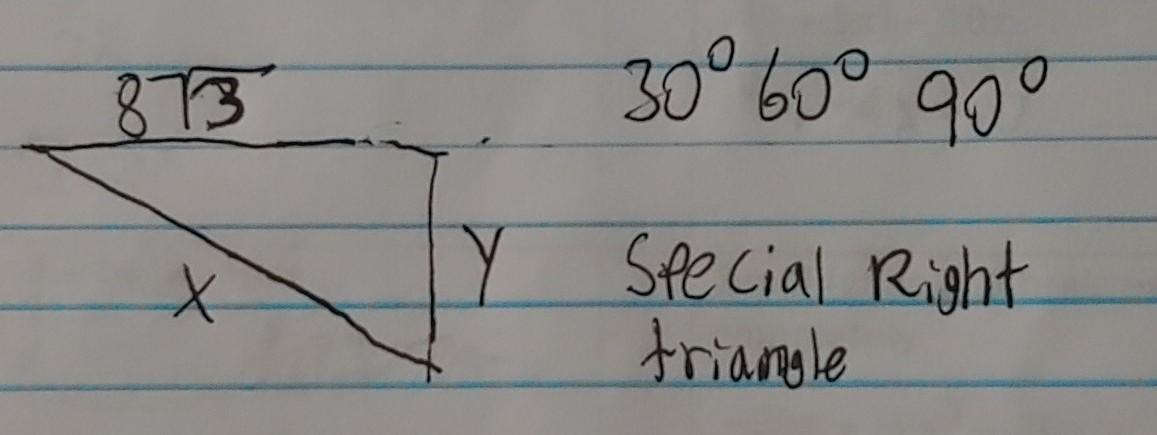 8√3
30° 60° 90°
Y
X
Special Right
triangle